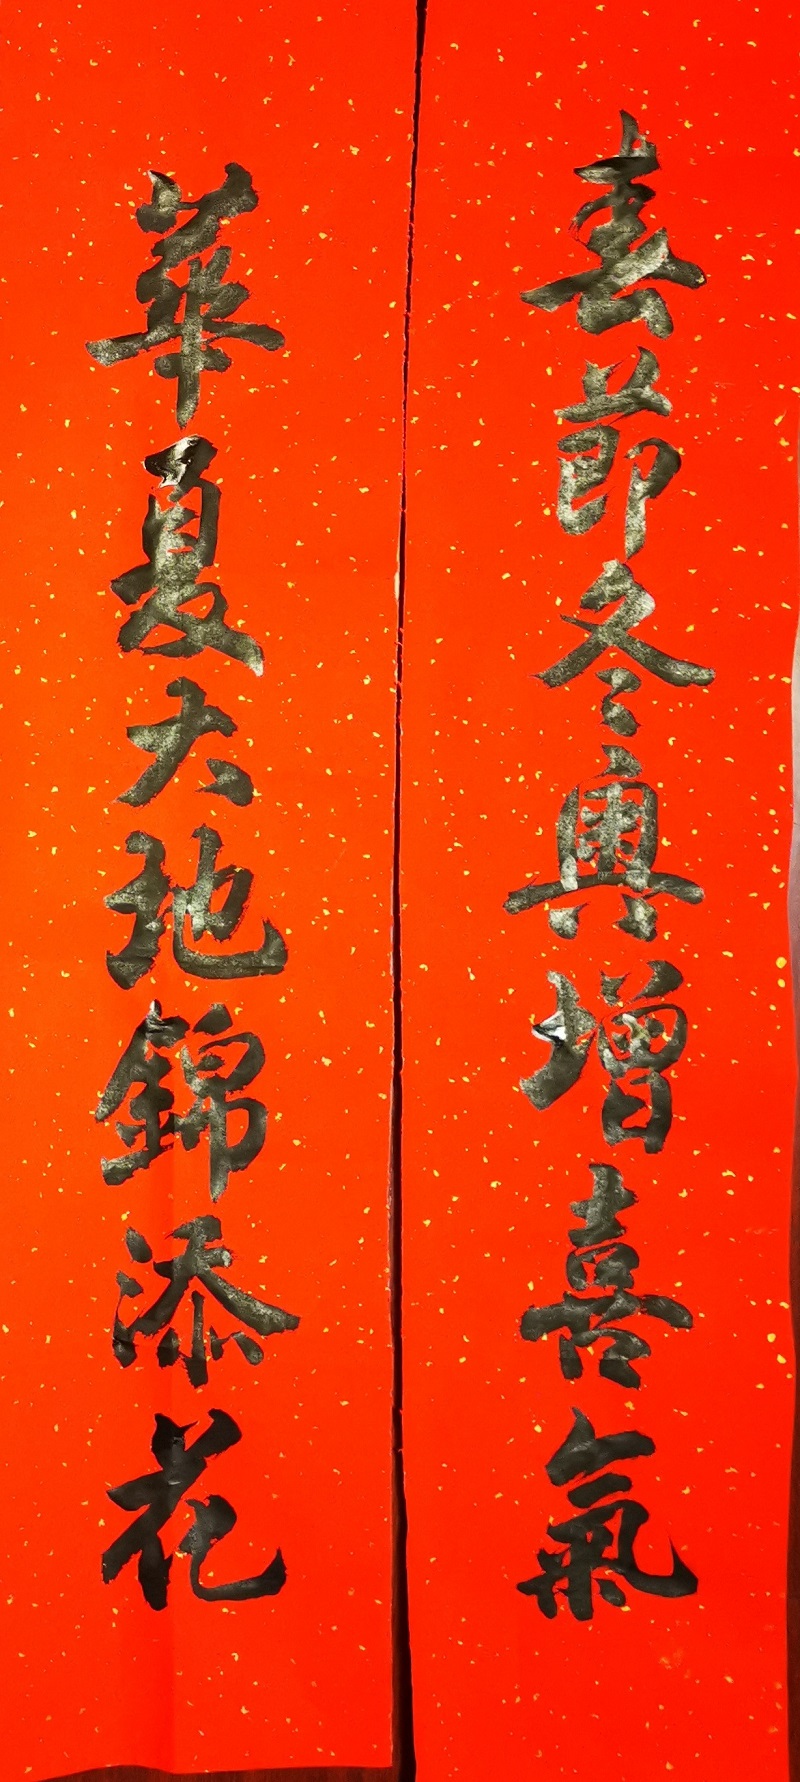 春節冬奧增喜氣
華夏大地錦添花